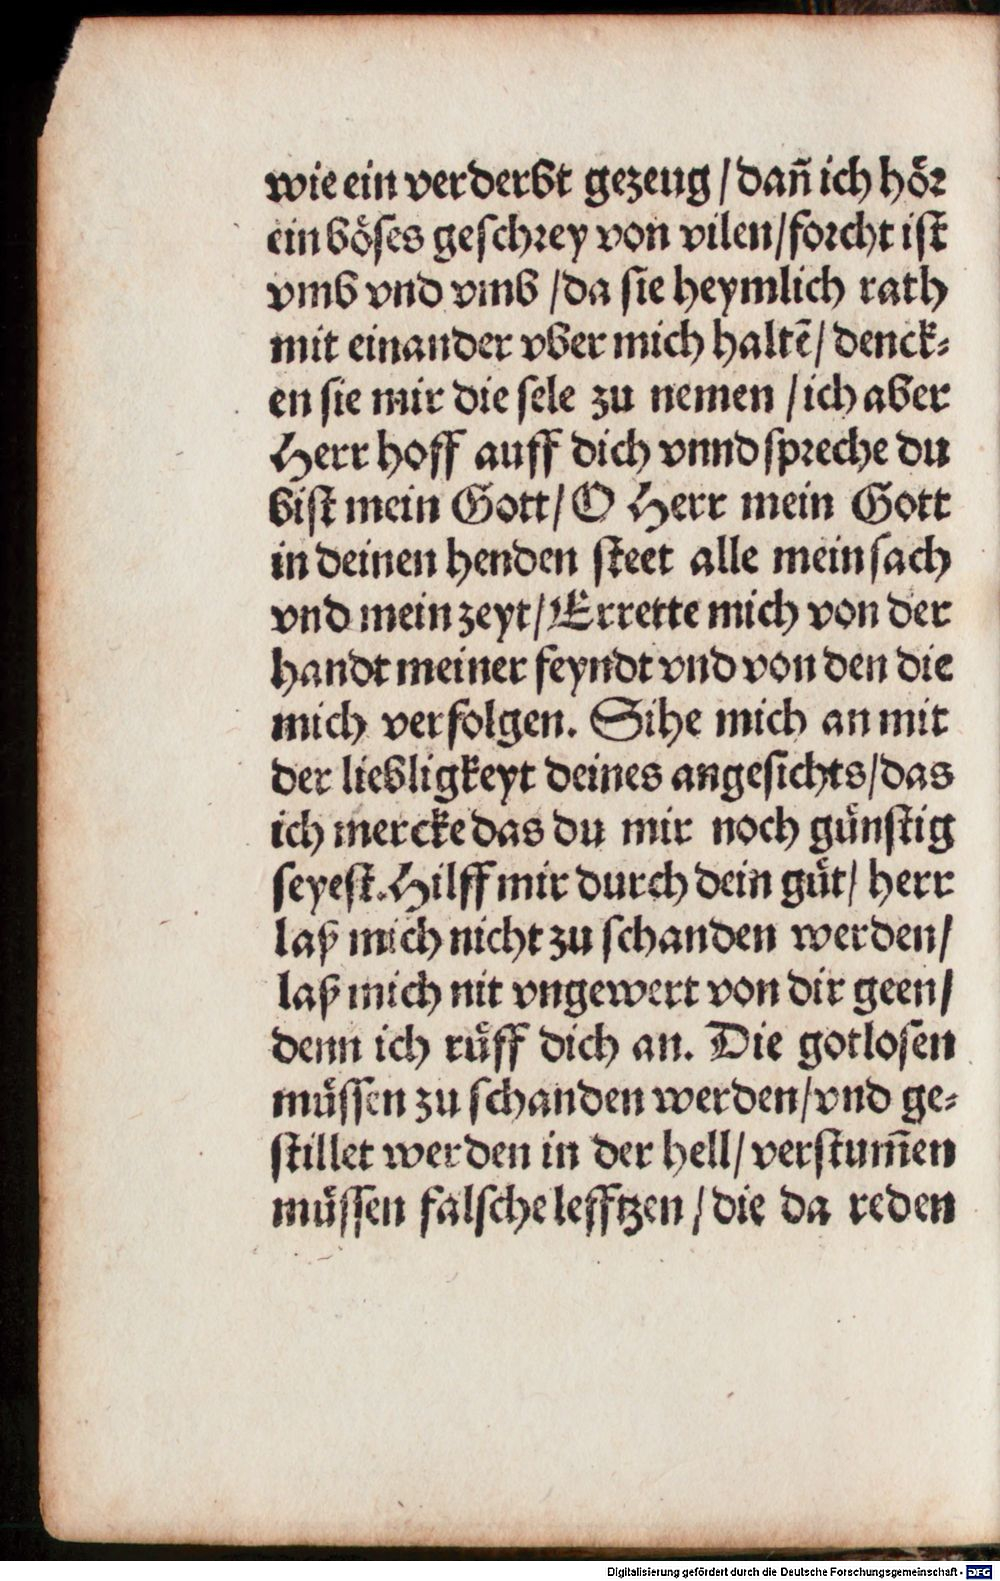 wie ein verderbt gezeug / dañ ich hoͤr
ein boͤses geschrey von vilen / forcht ist
vmb vnd vmb / da sie heymlich rath
mit einander vber mich haltē / denck⸗
en sie mir die sele zu nemen / ich aber
Herr hoff auff dich vnnd spreche du
bist mein Gott / O Herr mein Gott
in deinen henden steet alle mein sach
vnd mein zeyt / Errette mich von der
handt meiner feyndt vnd von den die
mich verfolgen. Sihe mich an mit
der liebligkeyt deines angesichts / das
ich mercke das du mir noch guͤnstig
seyest. Hilff mir durch dein guͤt / herr
laß mich nicht zu schanden werden /
laß mich nit vngewert von dir geen /
denn ich ruͤff dich an. Die gotlosen
muͤssen zu schanden werden / vnd ge⸗
stillet werden in der hell / verstum̄en
muͤssen falsche lefftzen / die da reden
Digitalisierung gefördert durch die Deutsche Forschungsgemeinschaft - DFG